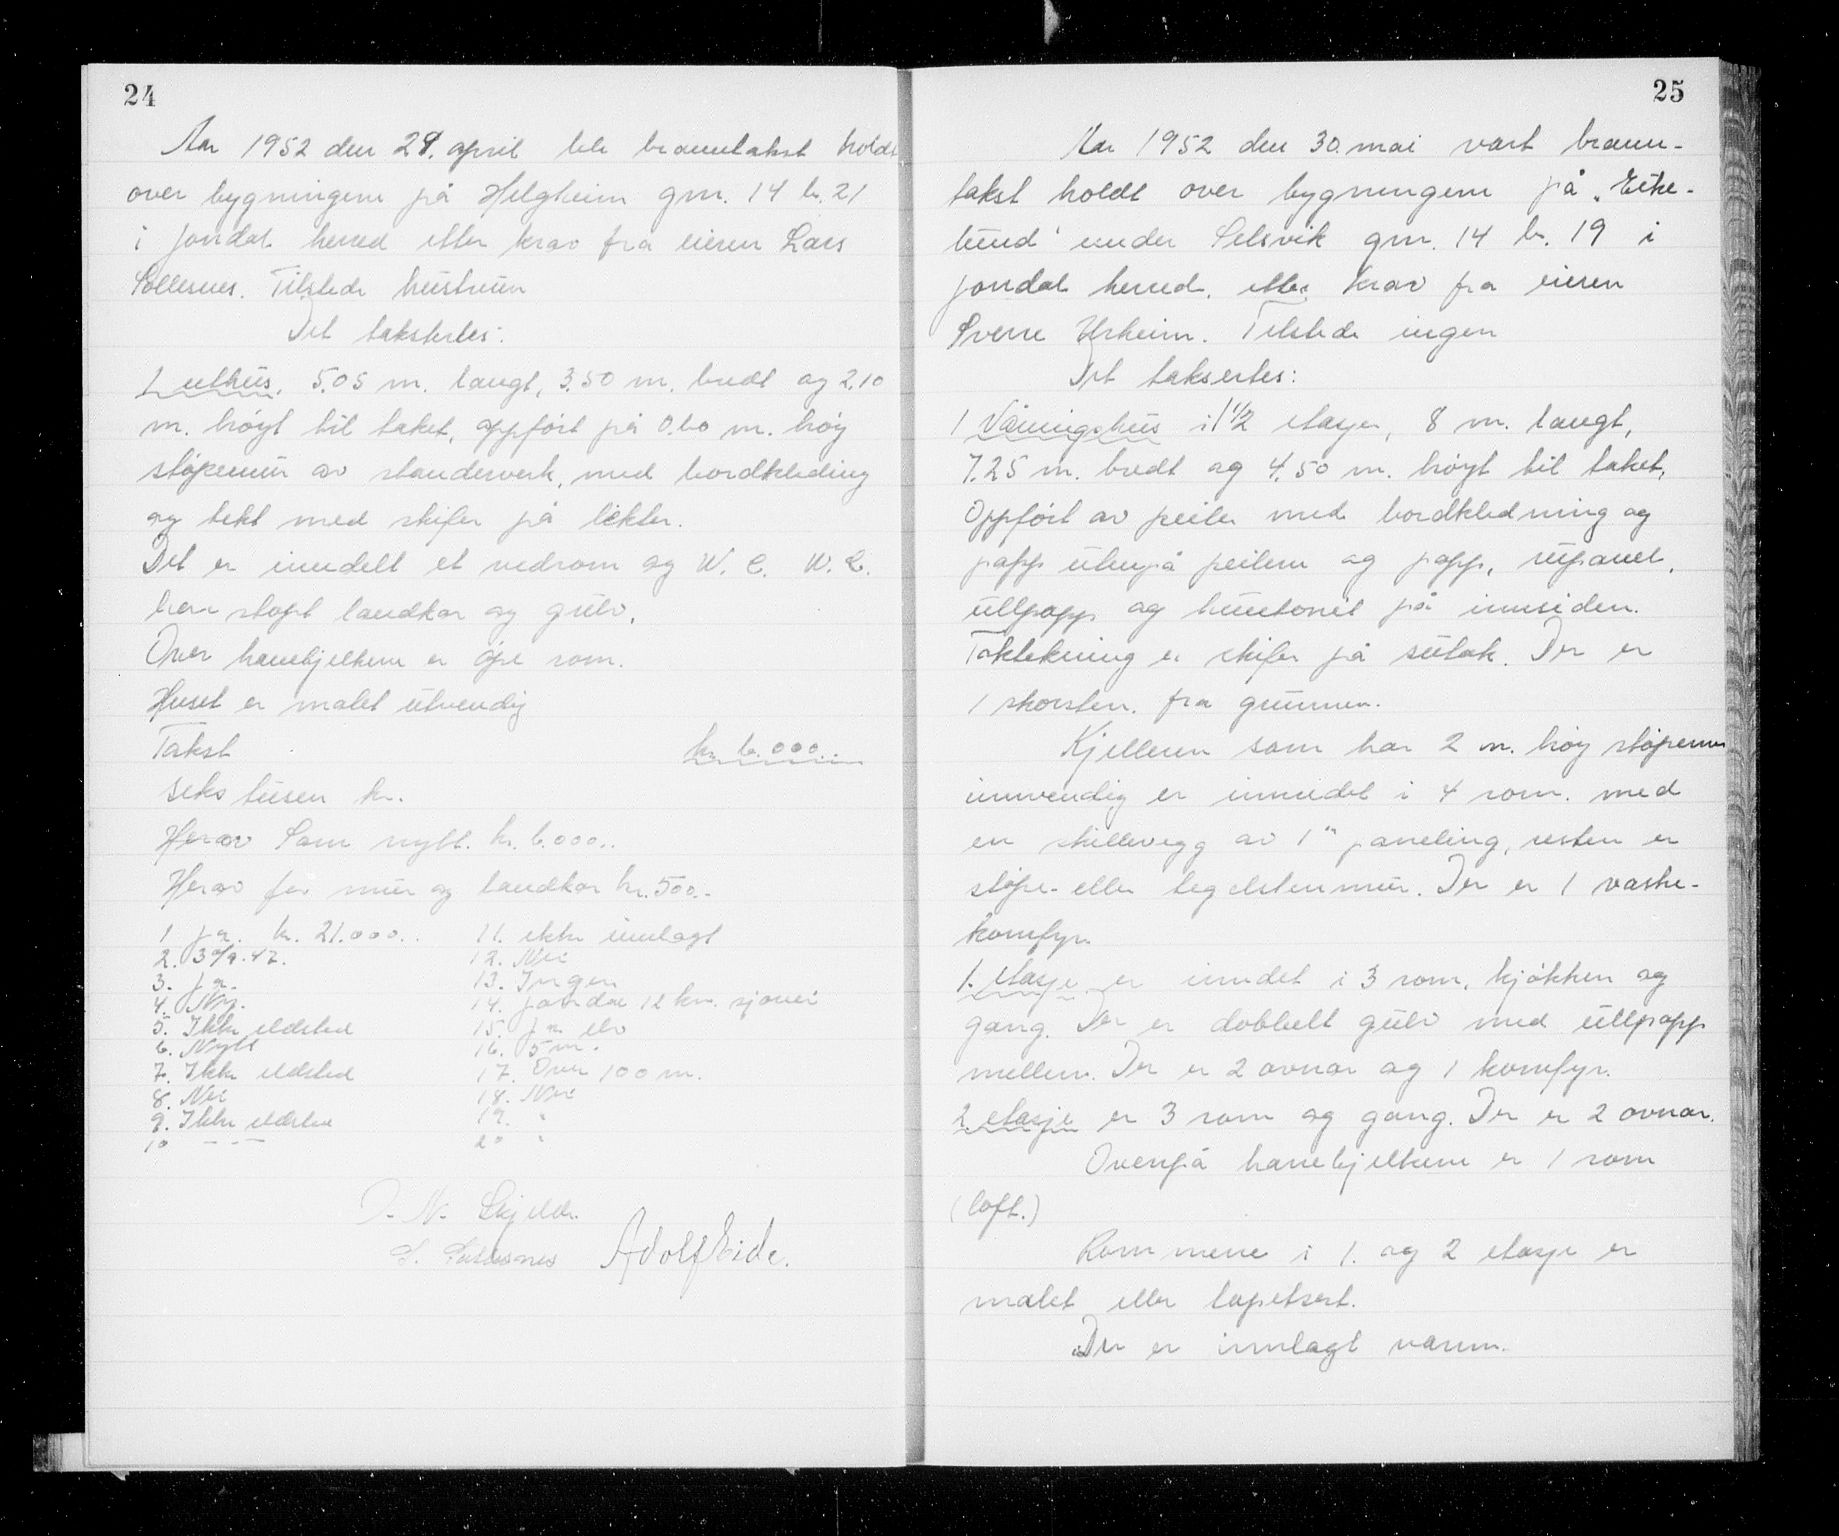 24
Aar 1952 den 28. april ble branntakst holdt
over bygningene på Helgheim gnr. 14 br. 21
i Jondal herred etter krav fra eieren Lars
Sollesnes. Tilstede hustruen
Det taksertes:
1 uthus, 5.05 m. langt, 3.50 m. bredt og 2.10
m. høyt til taket, oppført på 0.60 m. høy
støpemur av standerverk, med bordkleding
og tekt med skifer på lekter.
Det er inndelt et vedrom og W. C. W. C.
har støpt landkar og gulv.
Over hanebjelkene er åpe rom.
Huset er malet utvendig
Takst kr. 6.000.-
seks tusen kr.
Herav Som nytt. kr. 6.000..
Herav for mur og landkar kr. 500.-
1 ja. kr. 21.000.. 11. ikke innlagt
2. 30/9.47. 12. Nei
3. ja. 13. Ingen
4. Ny. 14. Jondal 12 km. sjøvei
5. Ikke ildsted 15. ja elv
6. Nytt 16. 5 m.
7. Ikke ildsted 17. Over 100 m.
8. Nei 18. Nei
9. Ikke ildsted 19. "
10 — — 20 "
N. Skjelde.
S. Sollesnes Adolf Eide.
25
Aar 1952 den 30. mai vart brann-
takst holdt over bygningene på "Eike-
lund" under Selsvik gnr. 14 br. 19 i
Jondal herred, etter krav fra eieren
Sverre Herheim. Tilstede ingen
Det taksertes:
1 Våningshus i 1 1/2 etasje, 8 m. langt,
7.25 m. bredt og 4.50 m. høyt til taket,
Oppført av peiler med bordkledning og
papp utenpå peilene og papp, rupanel,
ullpapp og huntonit på innsiden.
Taktekning er skifer på sutak. Der er
1 skorsten. fra grunnen.
Kjelleren som har 2 m. høy støpemur
innvendig er inndelt i 4 rom. med
en skillevegg av 1" paneling, resten er
støpe- eller teglstenmur. Der er 1 vaske-
komfyr.
1. etasje er inndet i 3 rom, kjøkken og
gang. Der er dobbelt gulv med ullpapp
mellem. Der er 2 ovnar og 1 komfyr.
2. etasje er 3 rom og gang. Der er 2 ovnar.
Ovenpå hanebjelkene er 1 rom
(loft.)
Rommene i 1. og 2 etasje er
malet eller tapetsert.
Der er innlagt vann.